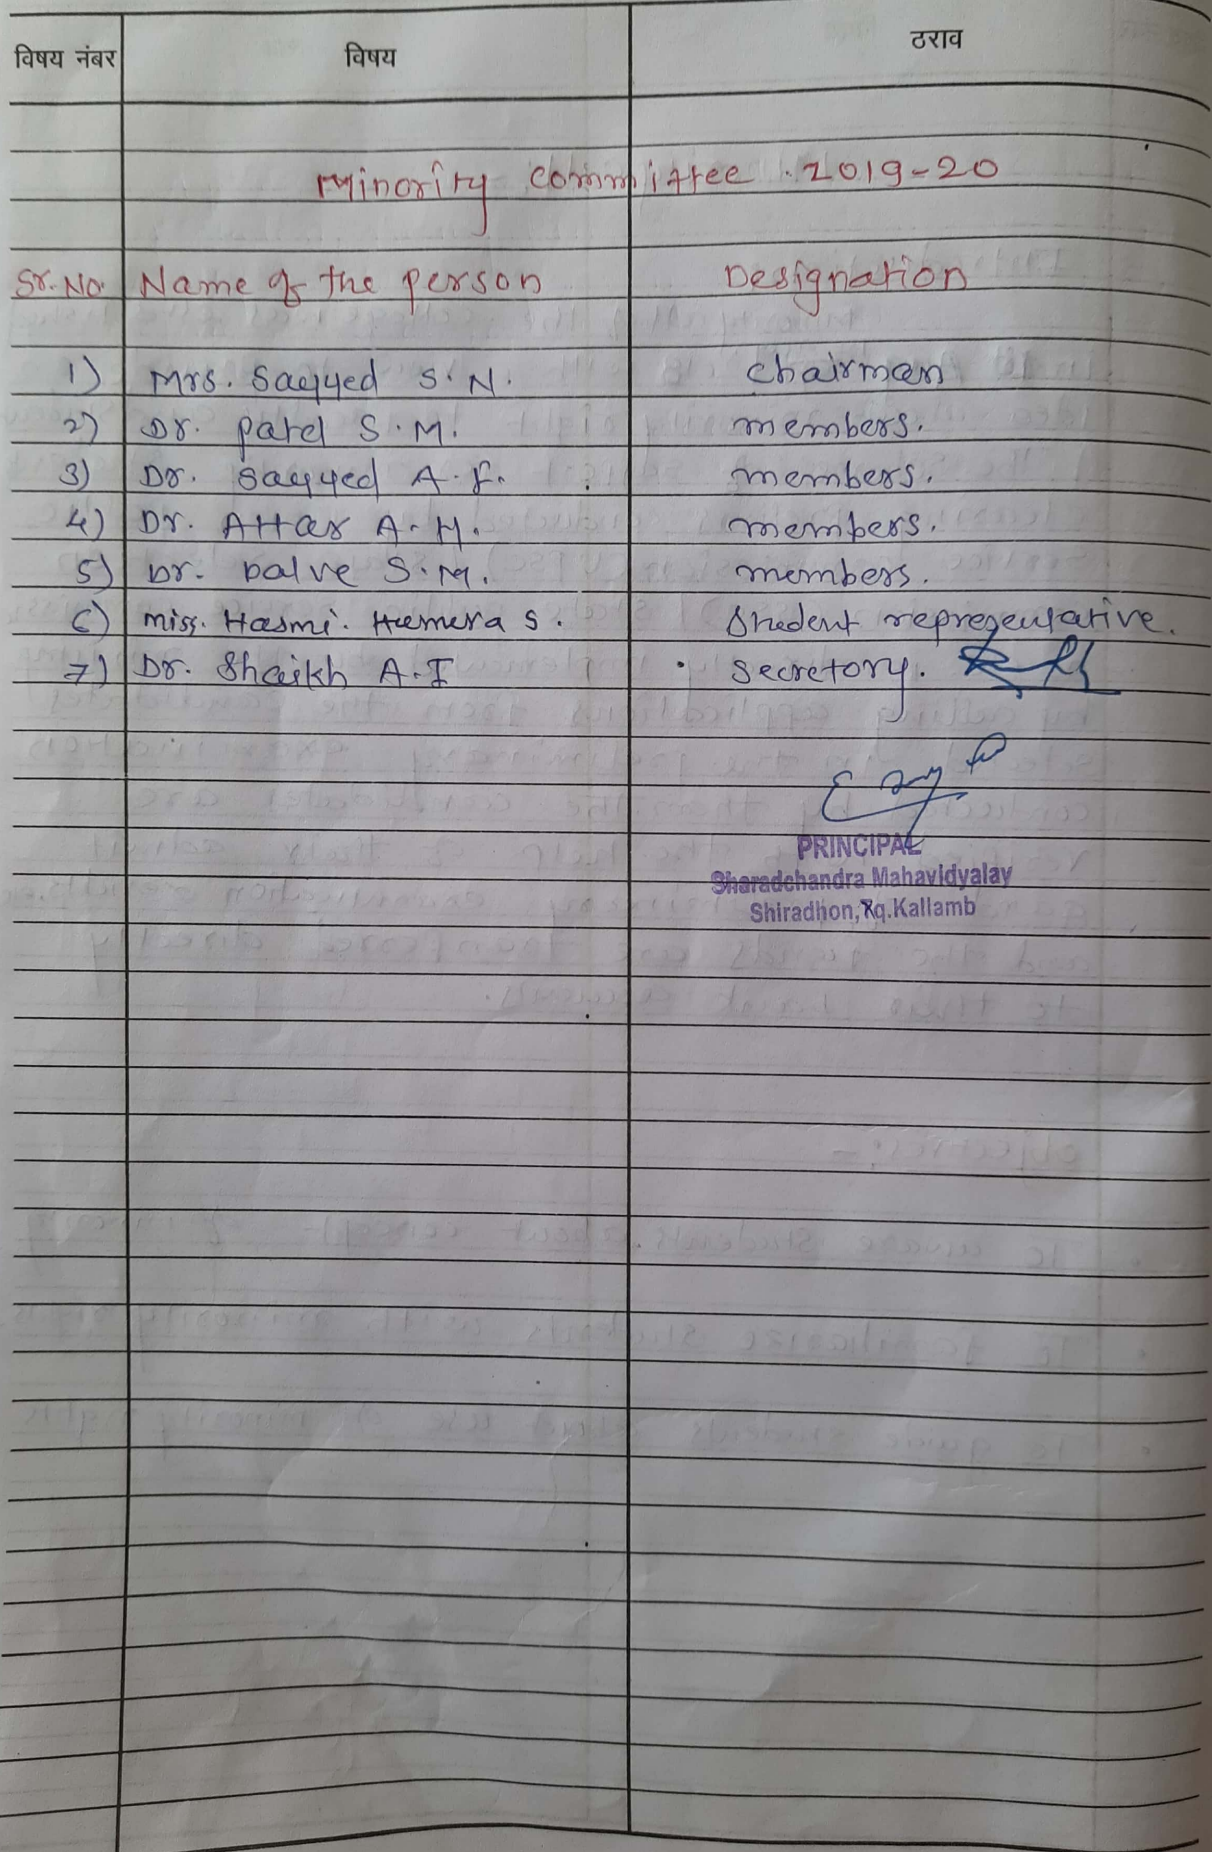 विषय नंबर विषय ठराव
Minority Committee . 2019-20
Sr. No. Name of the person Designation
1) Mrs. Sayyed S. N. Chairman
2) Dr. Patel S. M. members.
3) Dr. Sayyed A. F. members.
4) Dr. Attar A. H. members.
5) Dr. Dalve S. M. members.
6) Miss. Hasmi. Humera S. Student representative.
7) Dr. Shaikh A. I Secretory.
PRINCIPAL
Sharadchandra Mahavidyalay
Shiradhon, Tq. Kallamb